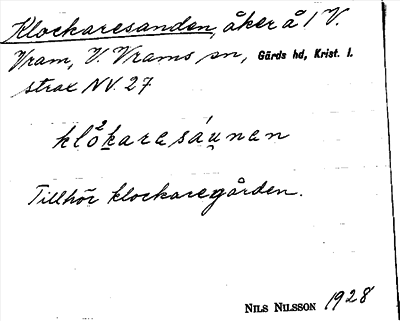 Klockaresanden, åker å 1 V.
Vram, V. Vrams sn, Gärds hd, Krist. l.
strax NV. 27
klåkaresáunen
Tillhör klockaregården.
NILS NILSSON 1928